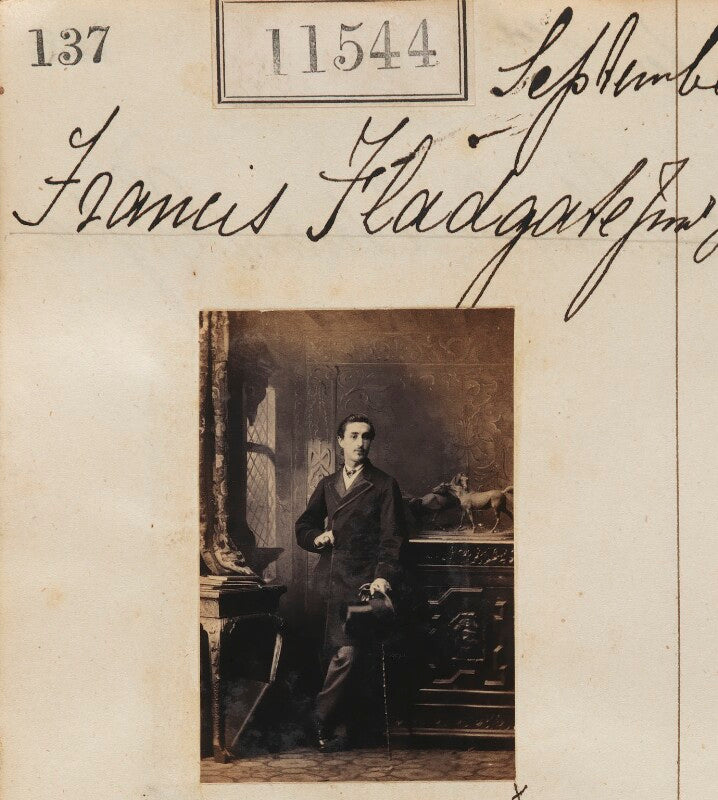 137
11544
Septembe
Francis Fladgate Junr
x